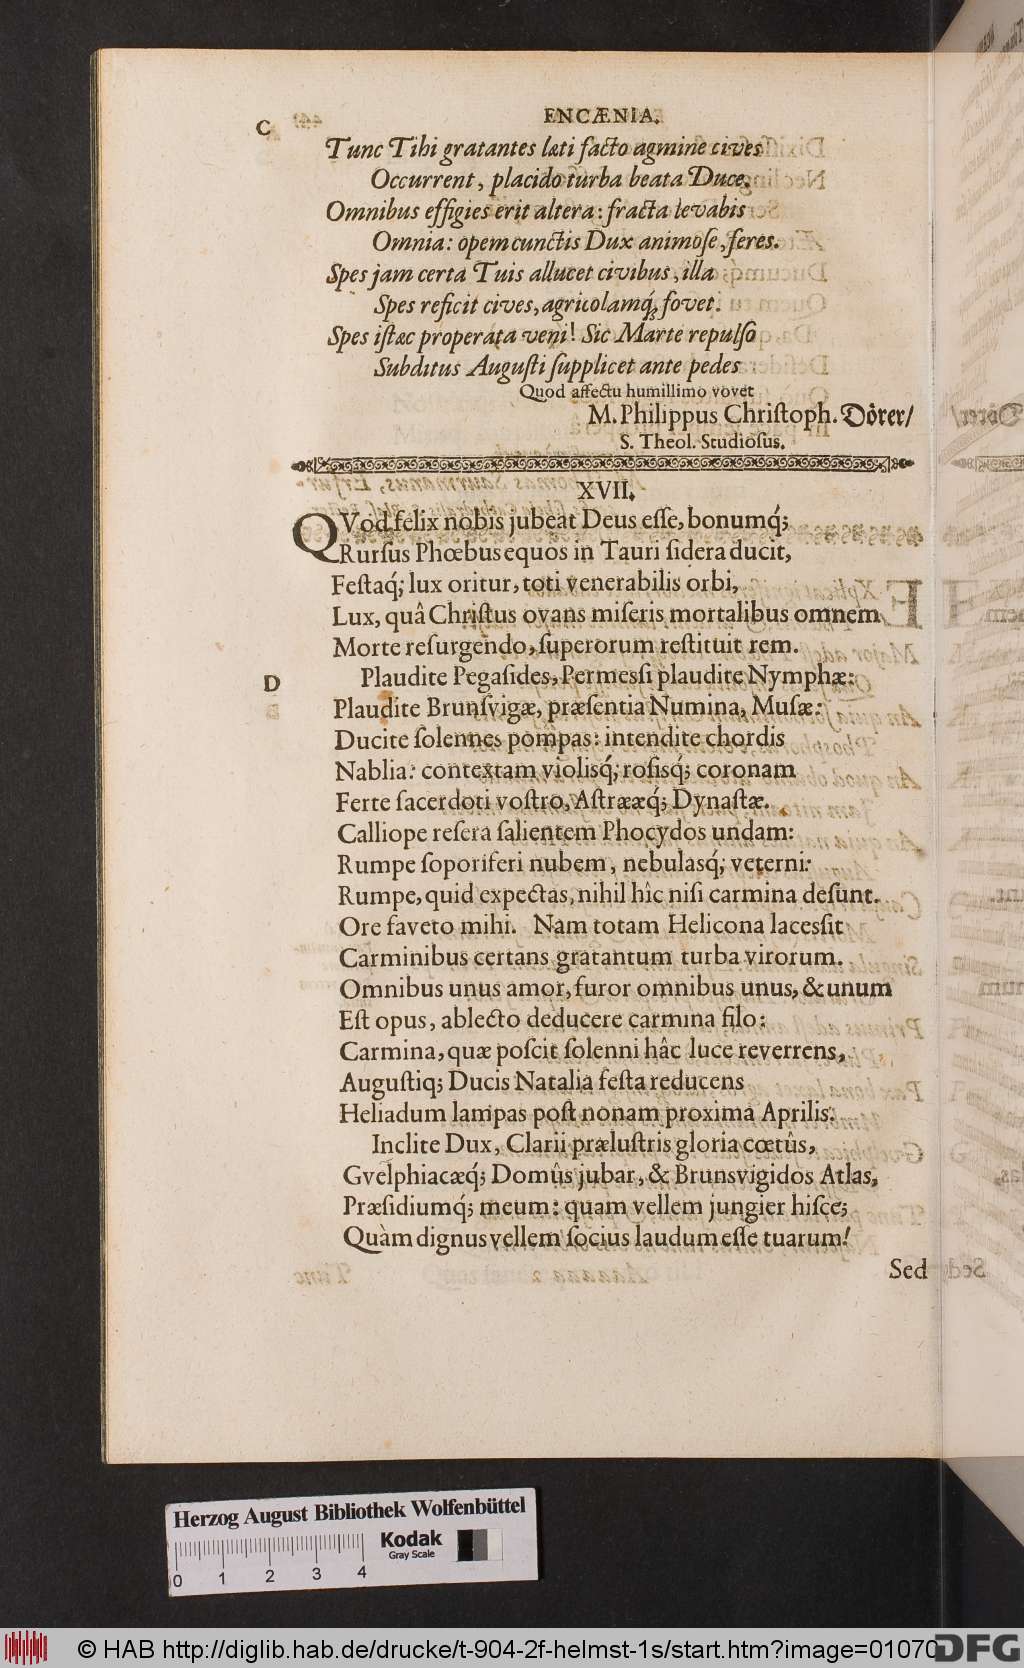 C
ENCÆNIA.
Tunc Tibi gratantes læti facto agmine cives
Occurrent, placido turba beata Duce.
Omnibus effigies erit altera: fracta levabis
Omnia: opem cunctis Dux animoſe, feres.
Spes jam certa Tuis allucet civibus, illa
Spes reficit cives, agricolamq́; fovet.
Spes iſtæc properata veni! Sic Marte repulſo
Subditus Auguſti ſupplicet ante pedes
Quod affectu humillimo vovet
M. Philippus Chriſtoph. Dörer/
S. Theol. Studioſus.
XVII.
QVod felix nobis jubeat Deus eſſe, bonumq́;
Rurſus Phœbus equos in Tauri ſidera ducit,
Feſtaq́; lux oritur, toti venerabilis orbi,
Lux, quâ Chriſtus ovans miſeris mortalibus omnem
Morte reſurgendo, ſuperorum reſtituit rem.
D
Plaudite Pegaſides, Permeſſi plaudite Nymphæ:
Plaudite Brunſvigæ, præſentia Numina, Muſæ:
Ducite ſolennes pompas: intendite chordis
Nablia: contextam violisq́; roſisq́; coronam
Ferte ſacerdoti voſtro, Aſtrææq́; Dynaſtæ.
Calliope reſera ſalientem Phocydos undam:
Rumpe ſoporiferi nubem, nebulasq́; veterni:
Rumpe, quid expectas, nihil hîc niſi carmina deſunt.
Ore faveto mihi. Nam totam Helicona laceſſit
Carminibus certans gratantum turba virorum.
Omnibus unus amor, furor omnibus unus, & unum
Eſt opus, ablecto deducere carmina filo:
Carmina, quæ poſcit ſolenni hâc luce reverrens,
Auguſtiq; Ducis Natalia feſta reducens
Heliadum lampas poſt nonam proxima Aprilis.
Inclite Dux, Clarii præluſtris gloria cœtûs,
Gvelphiacæq́; Domûs jubar, & Brunsvigidos Atlas,
Præſidiumq́; meum: quam vellem jungier hiſce;
Quàm dignus vellem ſocius laudum eſſe tuarum!
Sed
Herzog August Bibliothek Wolfenbüttel
Kodak
Gray Scale
0 1 2 3 4
© HAB http://diglib.hab.de/drucke/t-904-2f-helmst-1s/start.htm?image=01070
DFG